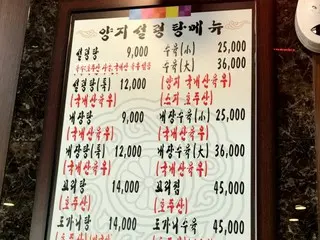 양지설렁탕메뉴
설렁탕 9,000 수육(小) 25,000
수육(大) 36,000
설렁탕(특) 12,000 (양지 국내산육우)
(국내산육우) (소지 호주산)
내장탕 9,000 내장수육(小) 25,000
(국내산육우) (국내산육우)
내장탕(특) 12,000 내장수육(大) 36,000
(국내산육우) (국내산육우)
꼬리탕 14,000 꼬리찜 45,000
(호주산) (호주산)
도가니탕 14,000 도가니수육 45,000